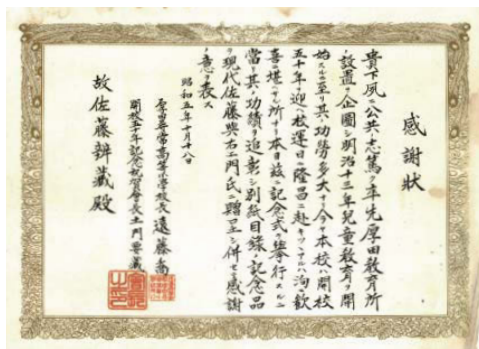 感謝狀
貴下夙ニ公共ノ志篤ク率先厚田教育所
ノ設置ヲ企圖シ明治十三年兒童教育ヲ開
始スルニ至リ其ノ功勞多大ナリ今ヤ本校ハ開校
五十年ヲ迎ヘ校運日ニ隆昌ニ赴キツヽアルハ洵ニ歡
喜ニ堪ヘサル所ナリ本日玆ニ記念式ヲ擧行スルニ
當リ其ノ功績ヲ追彰シ別紙目錄ノ記念品
ヲ現代佐藤與右エ門氏ニ贈呈シ併セテ感謝
ノ意ヲ表ス
昭和五年十月十八日
厚田尋常高等小學校長遠藤
開校五十年記念祝賀會長土門
故佐藤辨藏殿